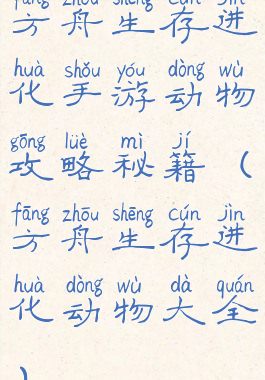 fāng zhōu shēng cún jìn
方舟生存进
huà shǒu yóu dòng wù
化手游动物
gōng lüè mì jí
攻略秘籍（
fāng zhōu shēng cún jìn
方舟生存进
huà dòng wù dà quán
化动物大全
）